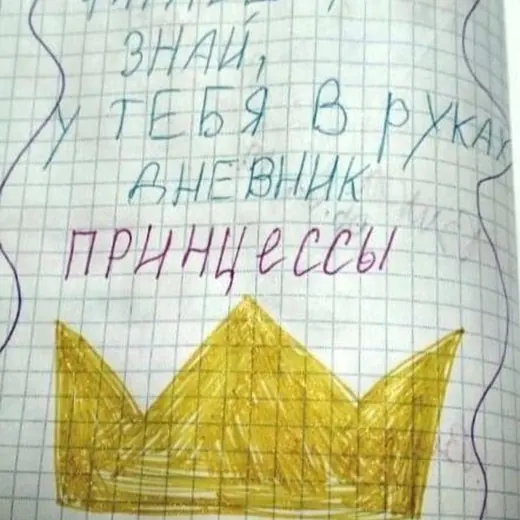 ЗНАЙ,
У ТЕБЯ В РУКАХ
ДНЕВНИК
ПРИНЦЕССЫ